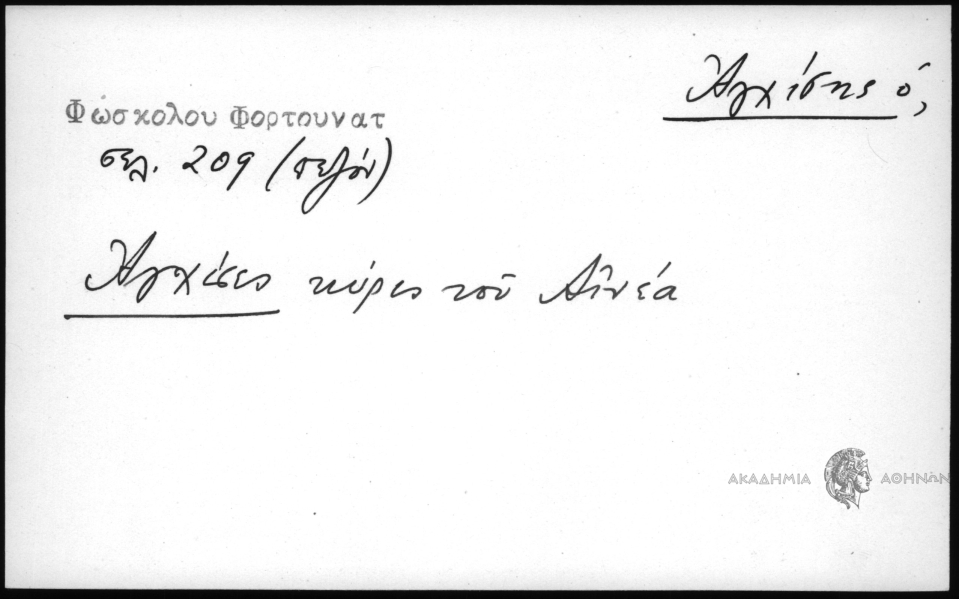 Ἀγχίσης ὁ,
Φώσκολου Φορτουνατ
σελ. 209 (πεζόν)
Ἀγχίσες κύρις τοῦ Αἰνέα
ΑΚΑΔΗΜΙΑ ΑΘΗΝΩΝ